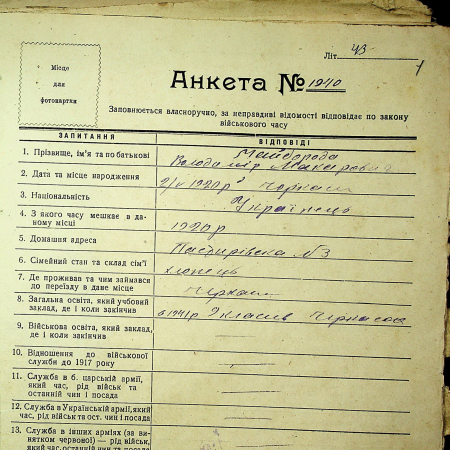 Місце
для
фотокартки
Літ. 43
Анкета № 1940
Заповнюється власноручно, за неправдиві відомості відповідає по закону
військового часу
ЗАПИТАННЯ
ВІДПОВІДІ
1. Прізвище, ім'я та по батькові
Майборода
Володимир Макарович
2. Дата та місце народження
1920р Черкаси
3. Національність
Українець
4. З якого часу мешкає в да-
ному місці
1920р
5. Домашня адреса
№3
6. Сімейний стан та склад сім'ї
хлопець
7. Де проживав та чим займався
до переїзду в дане місце
Черкаси
8. Загальна освіта, який учбовий
заклад, де і коли закінчив
в 1941р класів Черкаси
9. Військова освіта, який заклад,
де і коли закінчив
10. Відношення до військової
служби до 1917 року
11. Служба в б. царській армії,
який час, рід військ та
останній чин і посада
12. Служба в Українській армії, який
час, рід військ та ост. чин і посада
13. Служба в інших арміях (за ви-
нятком червоної) — рід військ,
який час, останній чин та посада